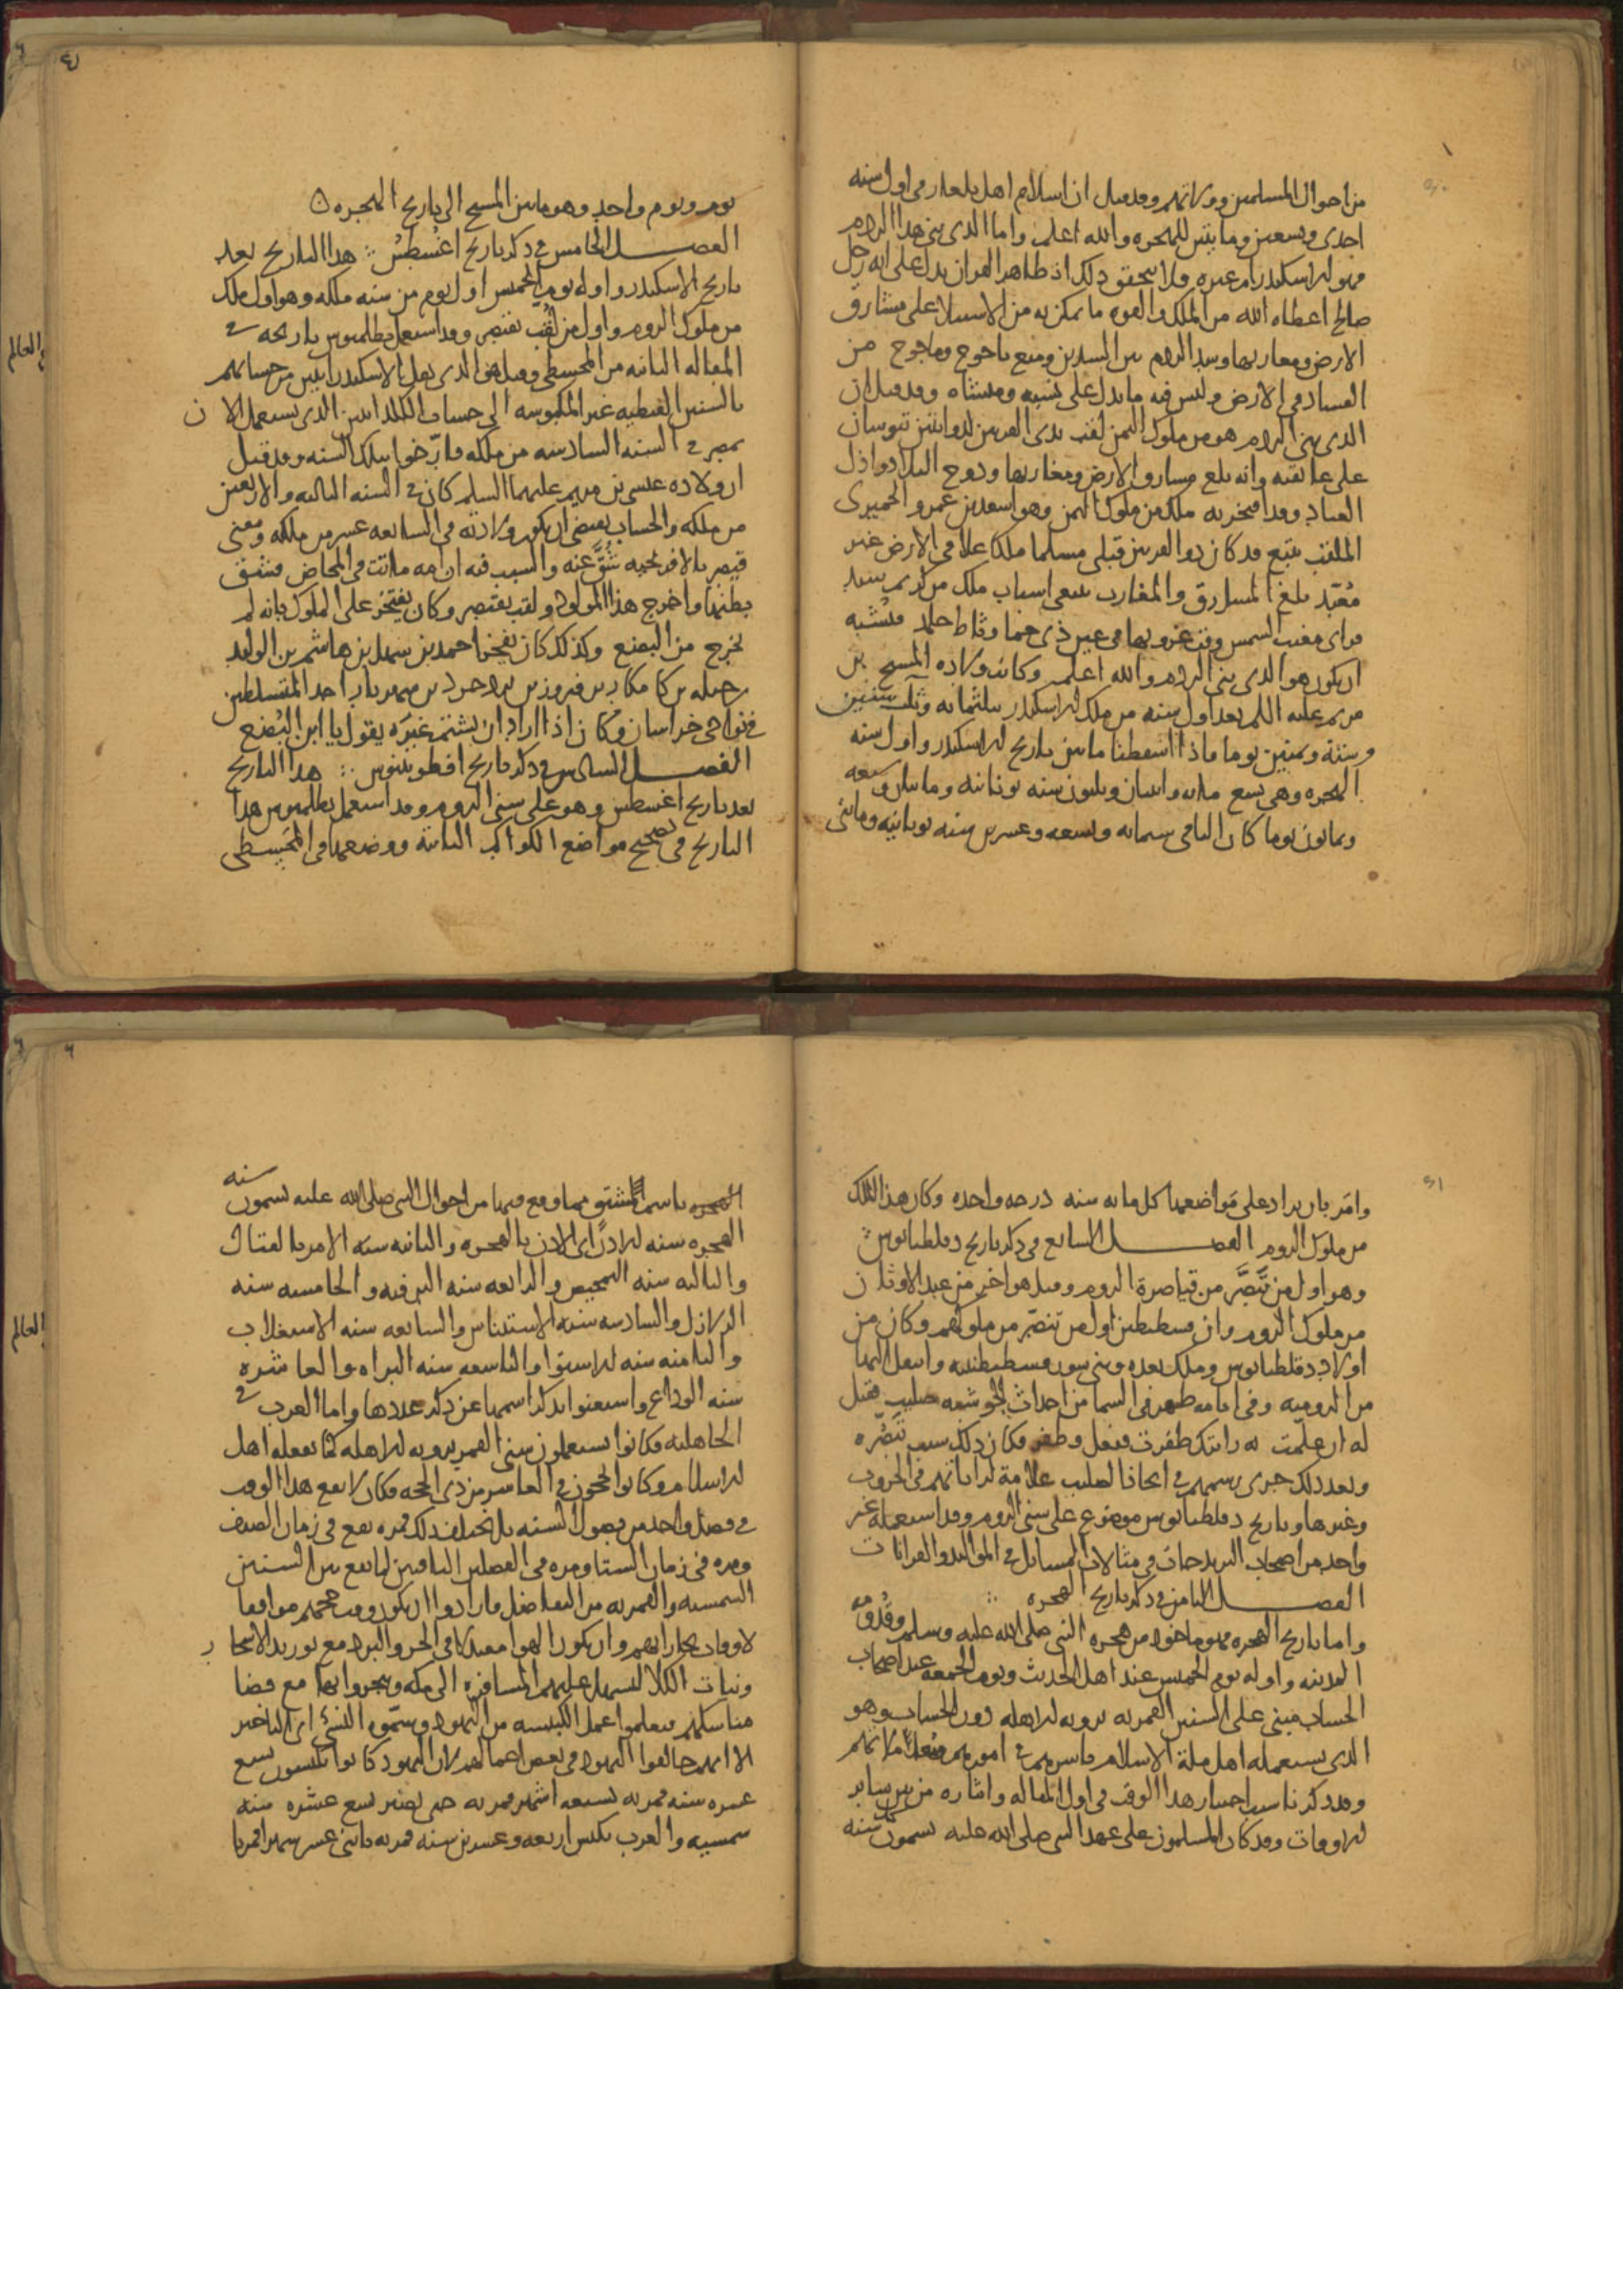 من احوال المسلمين وولاتهم وقد قيل ان اسلام اهل بلغار فى اول سنه
احدى وتسعين ومايتين للهجره والله اعلم واما الذى بنى هذا الردم
فهو الاسكندر ام غيره فلا يتحقق ذلك اذ ظاهر القران يدل على انه رجل
صالح اعطاه الله من الملك والقوه ما تمكن به من الاستيلا على مشارق
الارض ومغاربها وسد الردم بين السدين ومنع ياجوج وماجوج من
الفساد فى الارض وليس فيه ما يدل على نسبه ومنشاه وقد قيل ان
الذى بنى الردم هو من ملوك اليمن لقب بذى القرنين لذوابتين تنوسان
على عاتقه وانه بلغ مشارق الارض ومغاربها ودوخ البلاد واذل
العباد وقد افتخر به ملك من ملوك اليمن وهو اسعد بن عمرو الحميرى
الملقب بتبع قد كان ذو القرنين قبلى مسلما ملكا علا فى الارض غير
مُعَبّد بلغ المشارق والمغارب يبتغى اسباب ملك من كريم سيد
فراى مغيب الشمس وقت غروبها فى عين ذى حما وثاط حرمد فيُشبه
ان يكون هو الذى بنى الردم والله اعلم وكانت ولاده المسيح بن
مريم عليه السلم بعد اول سنه من ملك الاسكندر بثلثمائه وثلث سنين
وستة وستين يوما فاذا اسقطنا مابين تاريخ الاسكندر واول سنه
الهجره وهى تسع مايه واثنان وثلثون سنه يونانيه ومايتان وسبعه
وثمانون يوما كان الباقى ستمايه وتسعه وعشرين سنه يونانيه ومايتى
يوم ويوم واحد وهو مابين المسيح الى تاريخ الهجره
الفصل الخامس فى ذكر تاريخ اغسطس هذا التاريخ بعد
تاريخ الاسكندر واوله يوم الخميس اول يوم من سنه ملكه وهو اول ملك
من ملوك الروم واول من لُقّب بقيصر وقد استعمل بطلميوس تاريخه فى
المقاله الثانيه من المجسطى وقيل هو الذى نقل الاسكندرانيين من حسابهم
بالسنين القبطيه غير المكبوسه الى حساب الكلدانيين الذى يستعمل الان
بمصر فى السنه السادسه من ملكه فارّخوا بتلك السنه وقد قيل
ان ولاده عيسى بن مريم عليهما السلم كان فى السنه الثالثه والاربعين
من ملكه والحساب يقتضى ان يكون ولادته فى السابعه عشر من ملكه ومعنى
قيصر بالافرنجيه شُقَّ عنه والسبب فيه ان امه ماتت فى المخاض فشق
بطنها واخرج هذا المولود ولقب بقيصر وكان يفتخر على الملوك بانه لم
يخرج من البضع وكذلك كان يفتخر احمد بن سهل بن هاشم بن الوليد
بن جبله بن كامكار بن فيروز بن يزدجرد بن شهريار احد المتسلطين
فى نواحى خراسان وكان اذا اراد ان يشتم غيرَه يقول يا ابن البُضع
الفصل السادس فى ذكر تاريخ انطونينوس هذا التاريخ
بعد تاريخ اغسطس وهو على سنى الروم وقد استعمل بطلميوس هذا
التاريخ فى تصحيح مواضع الكواكب الثابتة ووضعها فى المَجسطى
وامَر بان يزاد على مَواضعها كل مايه سنه درجه واحده وكان هذا الملك
من ملوك الروم الفصل السابع فى ذكر تاريخ دقلطيانوس
وهو اول من تنصَّر من قياصرة الروم وقيل هو اخر من عبد الاوثان
من ملوك الروم وان قسطنطين اول من تنصّر من ملوكهم وكان من
اولاد دقلطيانوس وملك بعده وبنى سور قسطنطنيه وانتقل اليها
من الروميه وفى ايامه ظهر فى السما من احداث الجو شبه صليب فقيل
له ان علّمت به رايتك ظفرت ففعل وظفر فكان ذلك سبب تنصُّره
وبعد ذلك جرى رسمهم فى اتخاذ الصليب علامة لراياتهم فى الحروب
وغيرها وتاريخ دقلطيانوس موضوع على سنى الروم وقد استعمله غير
واحد من اصحاب الزيجات فى مثالات المسايل فى المواليد والقرانات
الفصل الثامن فى ذكر تاريخ الهجره
واما تاريخ الهجره فهو ماخوذ من هجره النبى صلى الله عليه وسلم وقدومه
المدينه واوله يوم الخميس عند اهل الحديث ويوم الجمعه عند اصحاب
الحساب مبنى على السنين القمريه برويه الاهله دون الحساب وهو
الذى يستعمله اهل ملة الاسلام باسرهم فى امورهم
وقد ذكرنا سبب اختيار هذا الوقت فى اول المقاله وايثاره من بين ساير
الاوقات وقد كان المسلمون على عهد النبى صلى الله عليه يسمون كل سنه
سنه
الهجره باسم مُشتق مما وقع فيها من احوال النبى صلى الله عليه يسمون
الهجره سنه الاذن اى الاذن بالهجره والثانيه سنه الامر بالقتال
والثالثه سنه التمحيص والرابعه سنه الترفيه والخامسه سنه
الزلازل والسادسه سنه الاستيناس والسابعه سنه الاستغلاب
والثامنه سنه الاستوا والتاسعه سنه البراه والعاشره
سنه الوداع واستغنوا بذكر اسمها عن ذكر عددها واما العرب فى
الجاهليه فكانوا يستعملون سنى القمر برويه الاهله كما يفعله اهل
الاسلام وكانوا يحجون فى العاشر من ذى الحجه فكان لا يقع هذا الوقت
فى فصل واحد من فصول السنه بل يختلف ذلك فمره يقع فى زمان الصيف
ومره فى زمان الشتا ومره فى الفصلين الباقيين لما يقع بين السنين
الشمسيه والقمريه من التفاضل فارادوا ان يكون وقت حجهم موافقا
لاوقات تجاراتهم وان يكون الهوا معتدلا فى الحر والبرد مع توريد الاشجار
ونبات الكلا لتسهل عليهم المسافره الى مكه ويتجروا بها مع قضا
مناسكهم فتعلموا عمل الكبيسه من اليهود وسمّوه النسئ اى التاخير
الا انهم خالفوا اليهود فى بعض اعمالهم لان اليهود كانوا يكبسون تسع
عشره سنه قمريه بسبعه اشهر قمريه حتى تصير تسع عشره سنه
شمسيه والعرب تكبس اربعه وعشرين سنه قمريه باثنى عشر شهرا قمريا